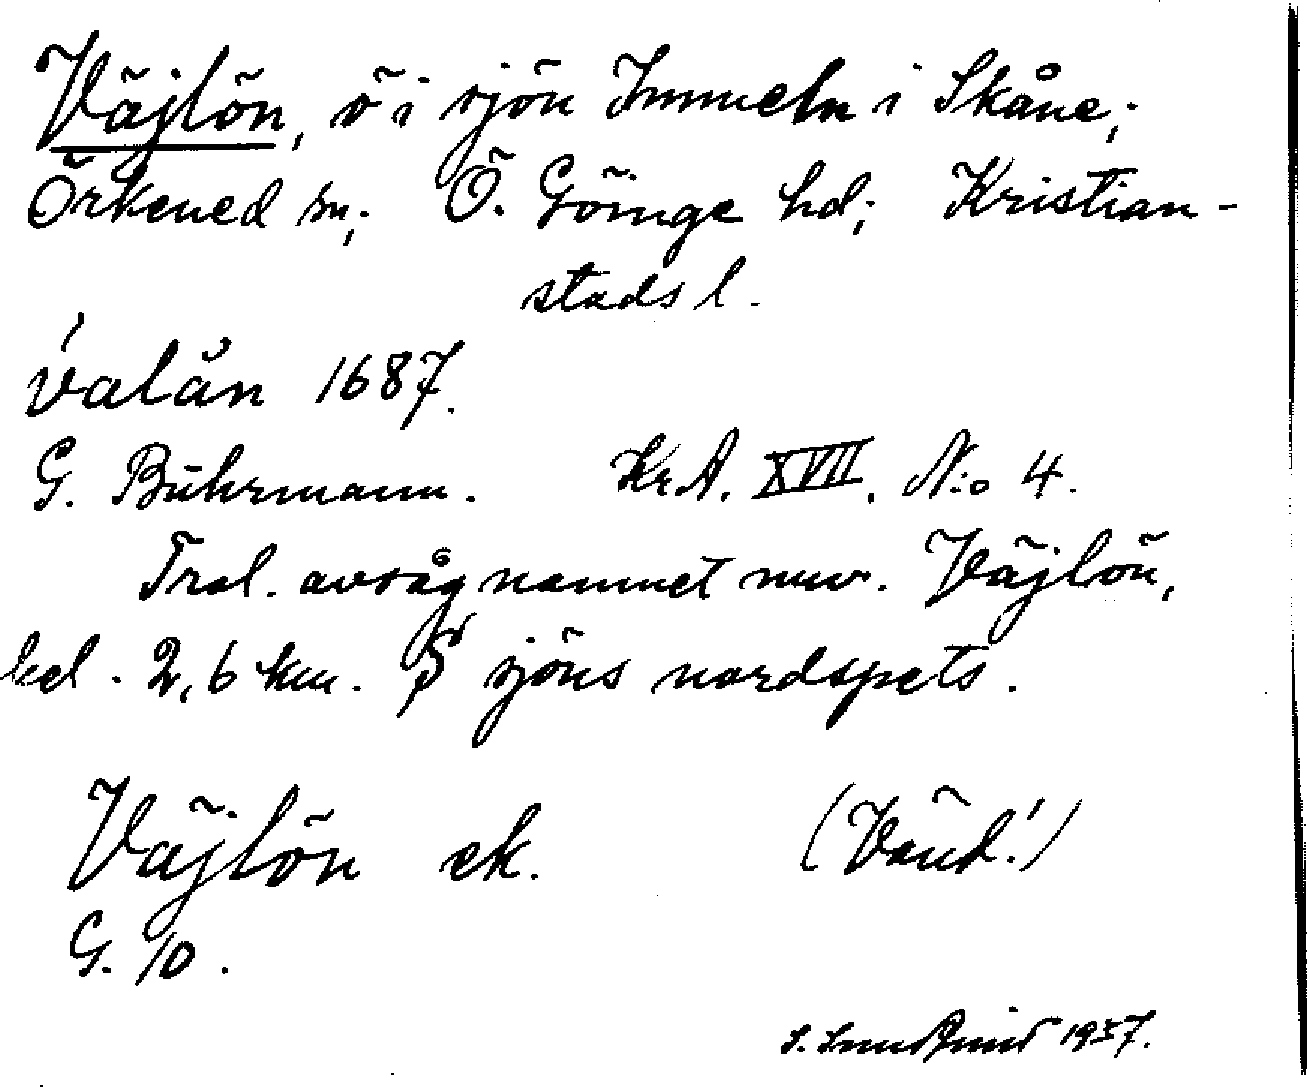 Väjlön, ö i sjön Immeln i Skåne;
Örkened sn; Ö. Göinge hd; Kristian-
stads l.
Valån 1687.
G. Buhrmann. Kr.A. XVII. N:o 4.
Trol. avsåg namnet nuv. Väjlön,
bel. 2,6 km. S sjöns nordspets.
Väjlön ek. (Vänd!)
G. 10.
S. 1937.